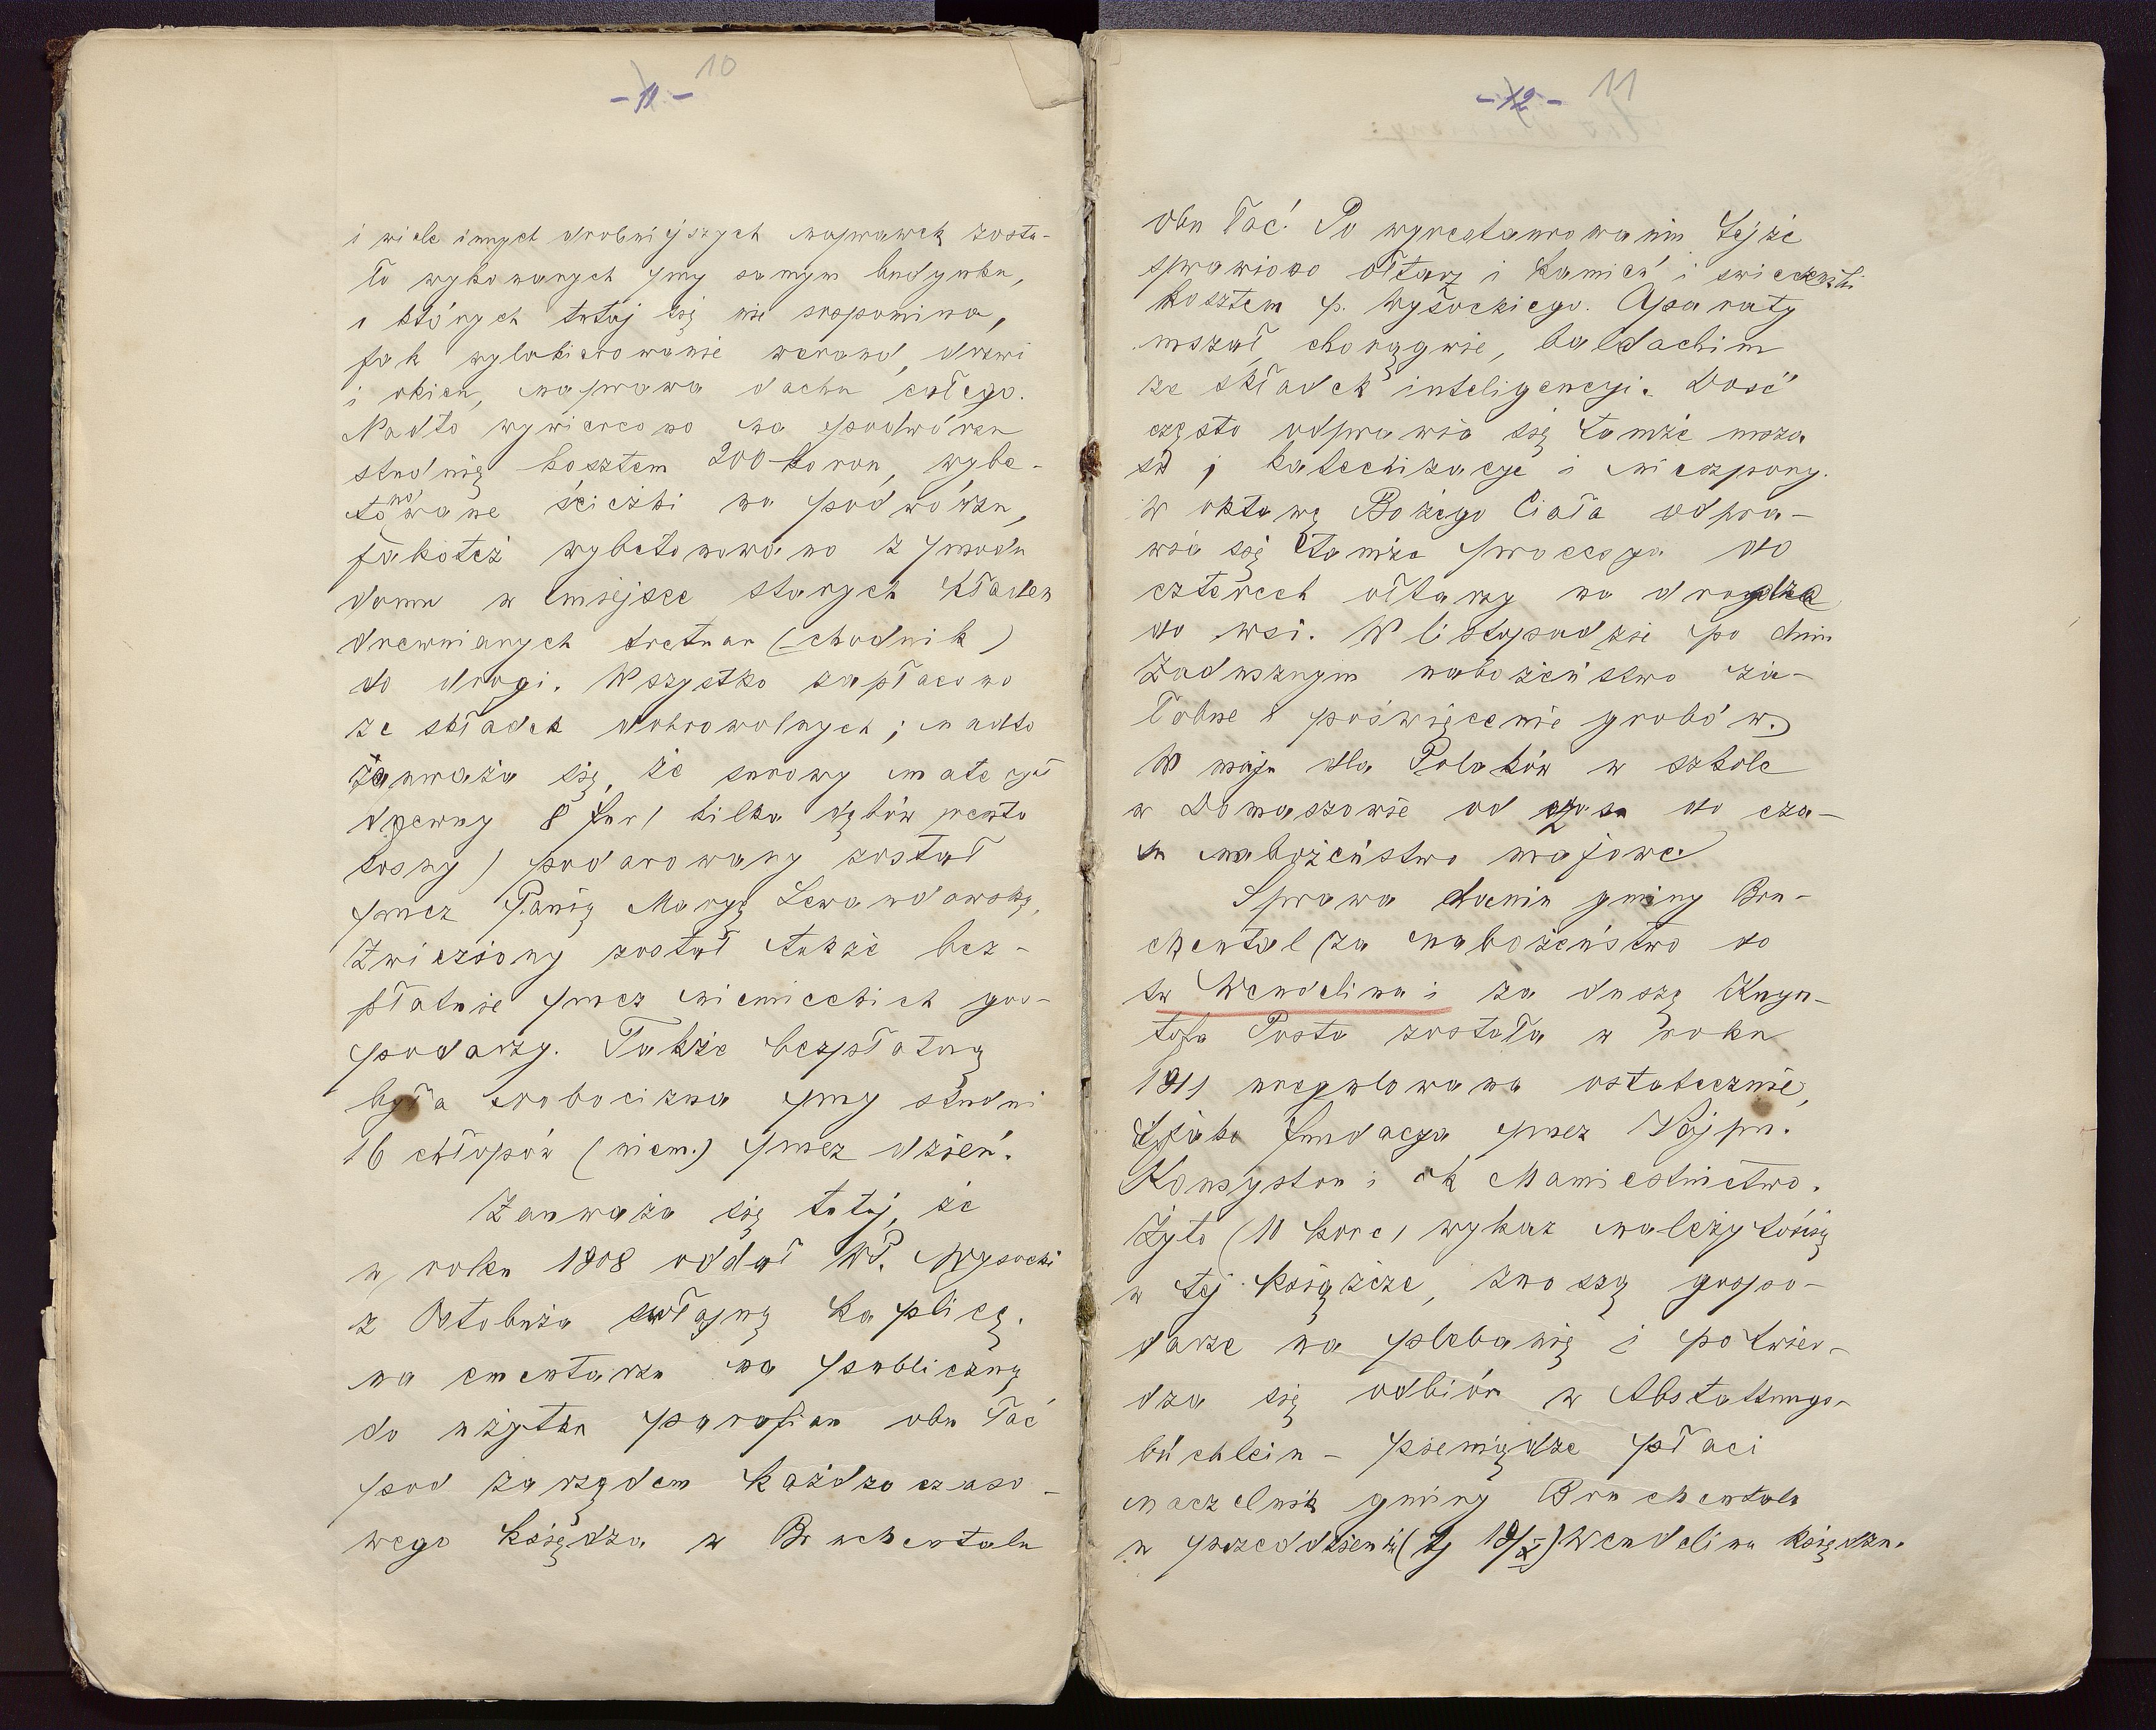 - 11 - 10
i wiele innych drobniejszych naprawek zosta-
ło wykonanych przy samym budynku,
o których tutaj się nie wspomina,
jak wylakierowanie werand, drzwi
i okien, naprawa dachu całego.
Nadto wywiercono na podwórzu
studnię kosztem 200 koron, wybe-
tonowane ścieżki na podwórzu,
jakoteż wybetonowano z przodu
domu w miejsce starych kładek
drewnianych tretuar (chodnik)
do drogi. Wszystko zapłacono
ze składek dobrowolnych; nadto
zauważa się, że surowy materyał
drzewny 8 fur / kilka dębów reszta
sosny) podarowany został
przez Panią Maryą Lewandowską,
zwieziony został także bez-
płatnie przez niemieckich gos-
podarzy. Także bezpłatną
była robocizna przy studni
16 chłopów (niem.) przez dzień.
Zauważa się tutaj, że
w roku 1908 oddał Wł. Wysocki
z Ostobuża kaplicę.
na cmentarzu na publiczny
do użytku parafian obu łać
pod zarządem każdoczaso-
wego księdza w Bruchentalu
- 12 - 11
obu łać. Po wyrestaurowaniu tejże
sprawiono ołtarz i kamień i swieczniki
kosztem p. Wysockiego. Aparaty
mszał, chorągwie, baldachim
ze składek inteligencyi. Dość
często odprawia się tamże msza
św i katechizacye i nieszpory.
W oktawę Bożego Ciała odpra-
wia się tamże procesya do
czterech ołtarzy na drodze
do wsi. W listopadzie po dniu
Zadusznym nabożeństwo ża-
łobne i poświęcenie grobów.
W maju dla Polaków w szkole
w Domaszowie od czasu do cza-
su nabożeństwo majowe
Sprawa danin gminy Bru-
chental (za nabożeństwo do
św Wendelina i za duszę Krysz-
tofa Posta została w roku
1911 uregulowana ostatecznie,
jako fundacya przez Najprz.
Konsystorz i ck Namiestnictwo.
Żyto (10 korc) wykaz należytością
w tej książce, znoszą gospo-
darze na plebanię i potwier-
dza się odbiór w Abstattungs-
büchlein - pieniądze płaci
naczelnik gminy Bruchentala
w przeddzień św (tj 19/X) Wendelina księdzu.